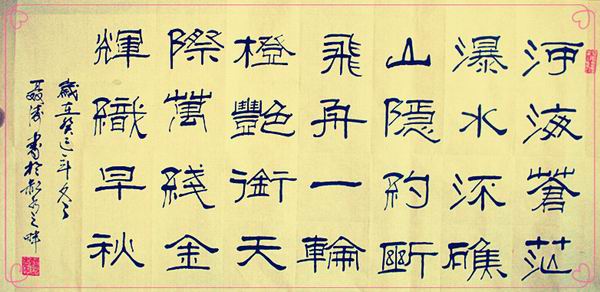 河海蒼茫
瀑水流礁
山隱約斷
飛舟一輪
橙艷銜天
際萬綫金
輝織早秋
歲在癸巳年冬
書於之畔